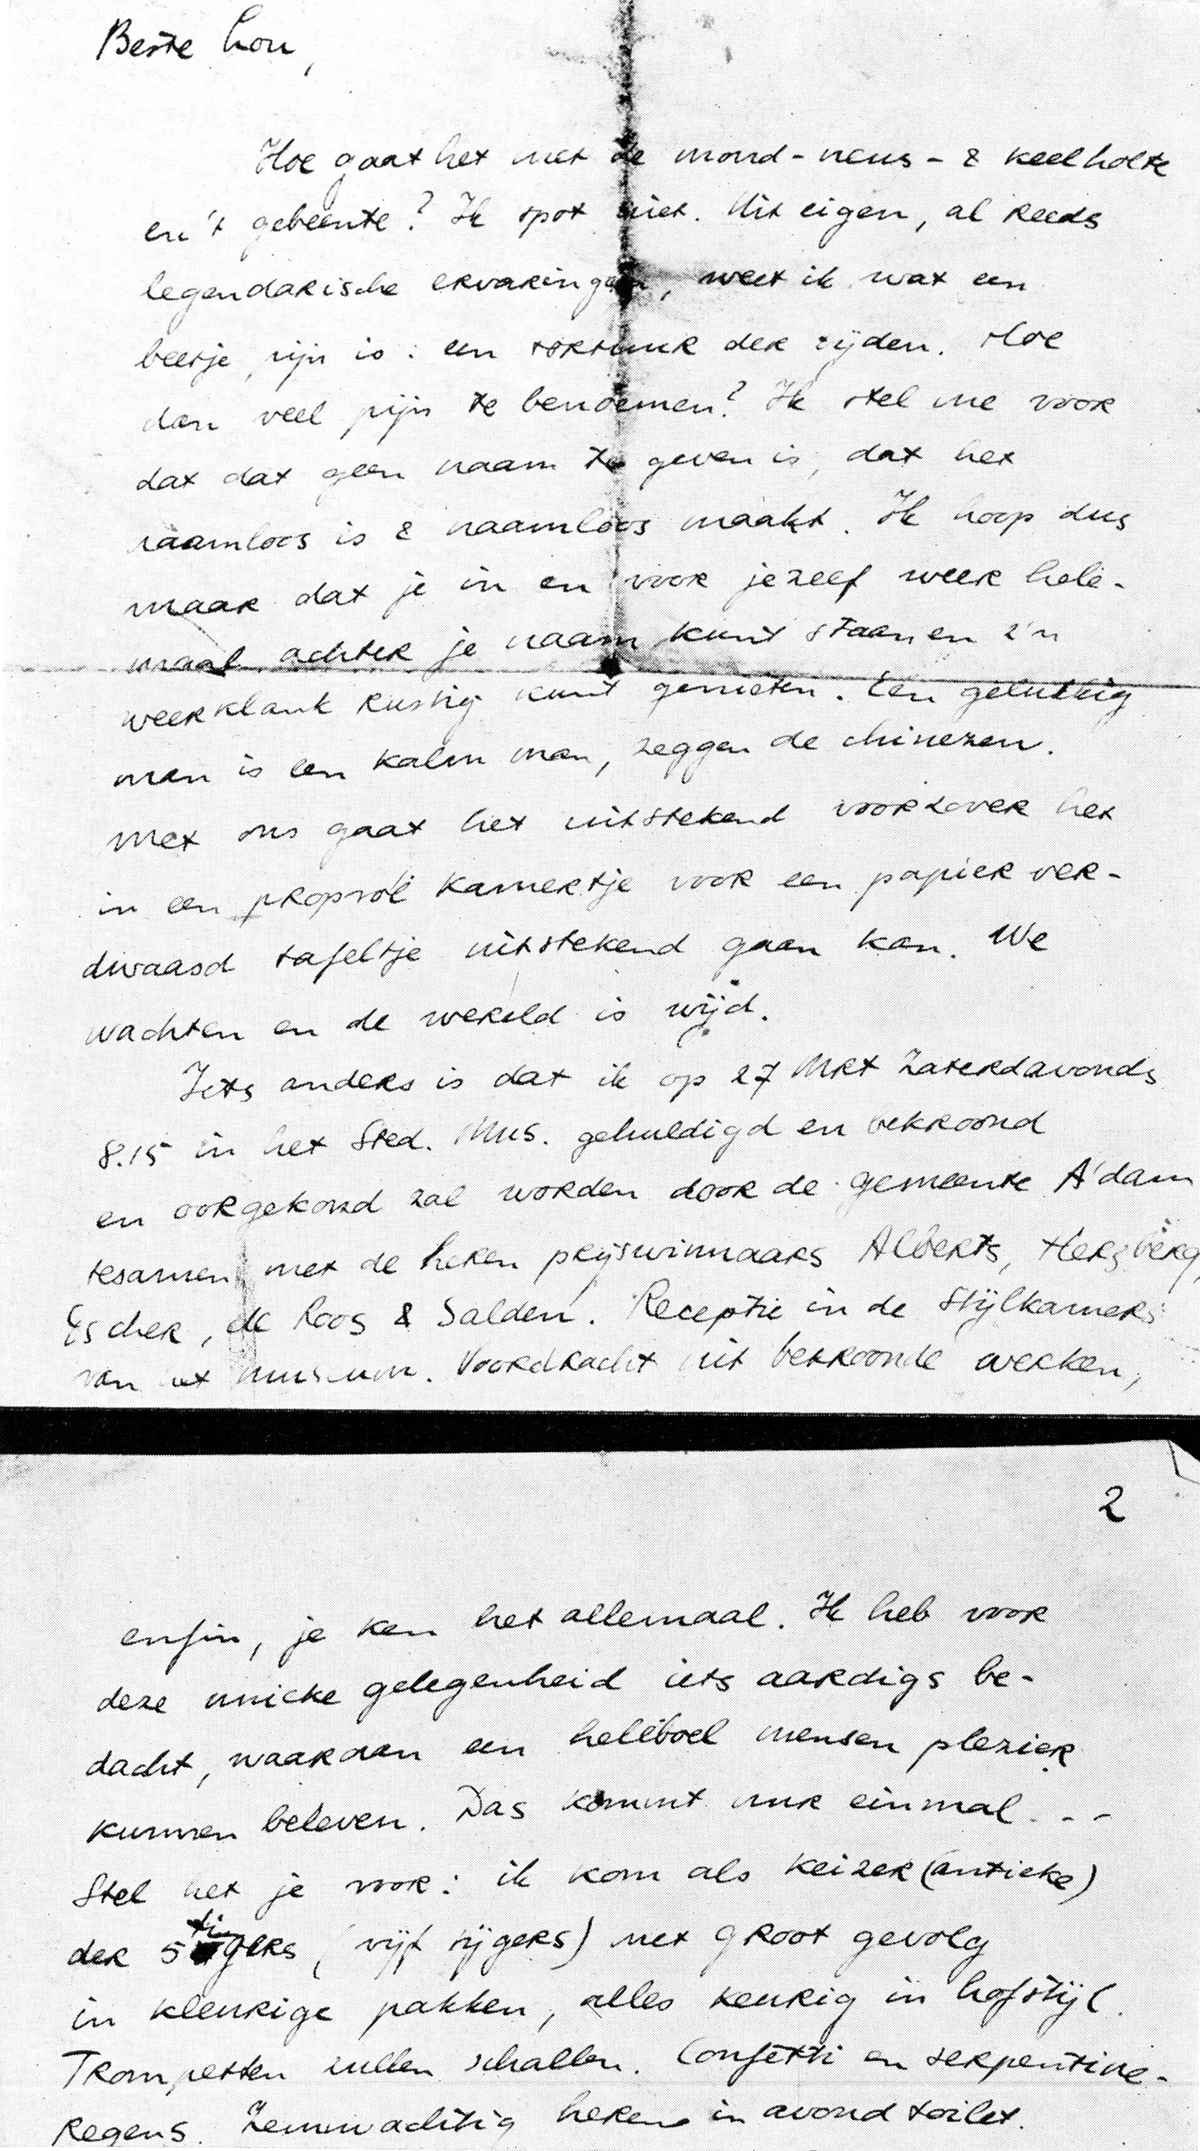 Beste Lou,
Hoe gaat het met de mond-neus- & keelholte
en 't gebeente? Ik spot niet. Uit eigen, al reeds
legendarische ervaringen, weet ik wat een
beetje pijn is: een torkluur der tijden. Hoe
dan veel pijn te benoemen? Ik stel me voor
dat dat geen naam te geven is, dat het
naamloos is & naamloos maakt. Ik hoop dus
maar dat je in en voor jezelf weer hele-
maal achter je naam kunt staan en z'n
weerklank rustig kunt genieten. Een gelukkig
man is een kalm man, zeggen de chinezen.
Met ons gaat het uitstekend voorzover het
in een propvol kamertje voor een papier ver-
dwaasd tafeltje uitstekend gaan kan. We
wachten en de wereld is wijd.
Iets anders is dat ik op 27 Mrt Zaterdavonds
8.15 in het Sted. Mus. gehuldigd en bekroond
en oorgekond zal worden door de gemeente A'dam
tesamen met de heren prijswinnaars Alberts, Herzberg,
Escher, de Roos & Salden. Receptie in de Stijlkamers
van het museum. Voordracht uit bekroonde werken,
2
enfin, je ken het allemaal. Ik heb voor
deze unieke gelegenheid iets aardigs be-
dacht, waaraan een heleboel mensen plezier
kunnen beleven. Das kommt nur einmal ---
Stel het je voor: ik kom als keizer (antieke)
der 5tigers (vijf tijgers) met groot gevolg
in kleurige pakken, alles keurig in hofstijl.
Trompetten zullen schallen. Confetti en serpentine-
regens. Zenuwachtig heren in avond toilet.